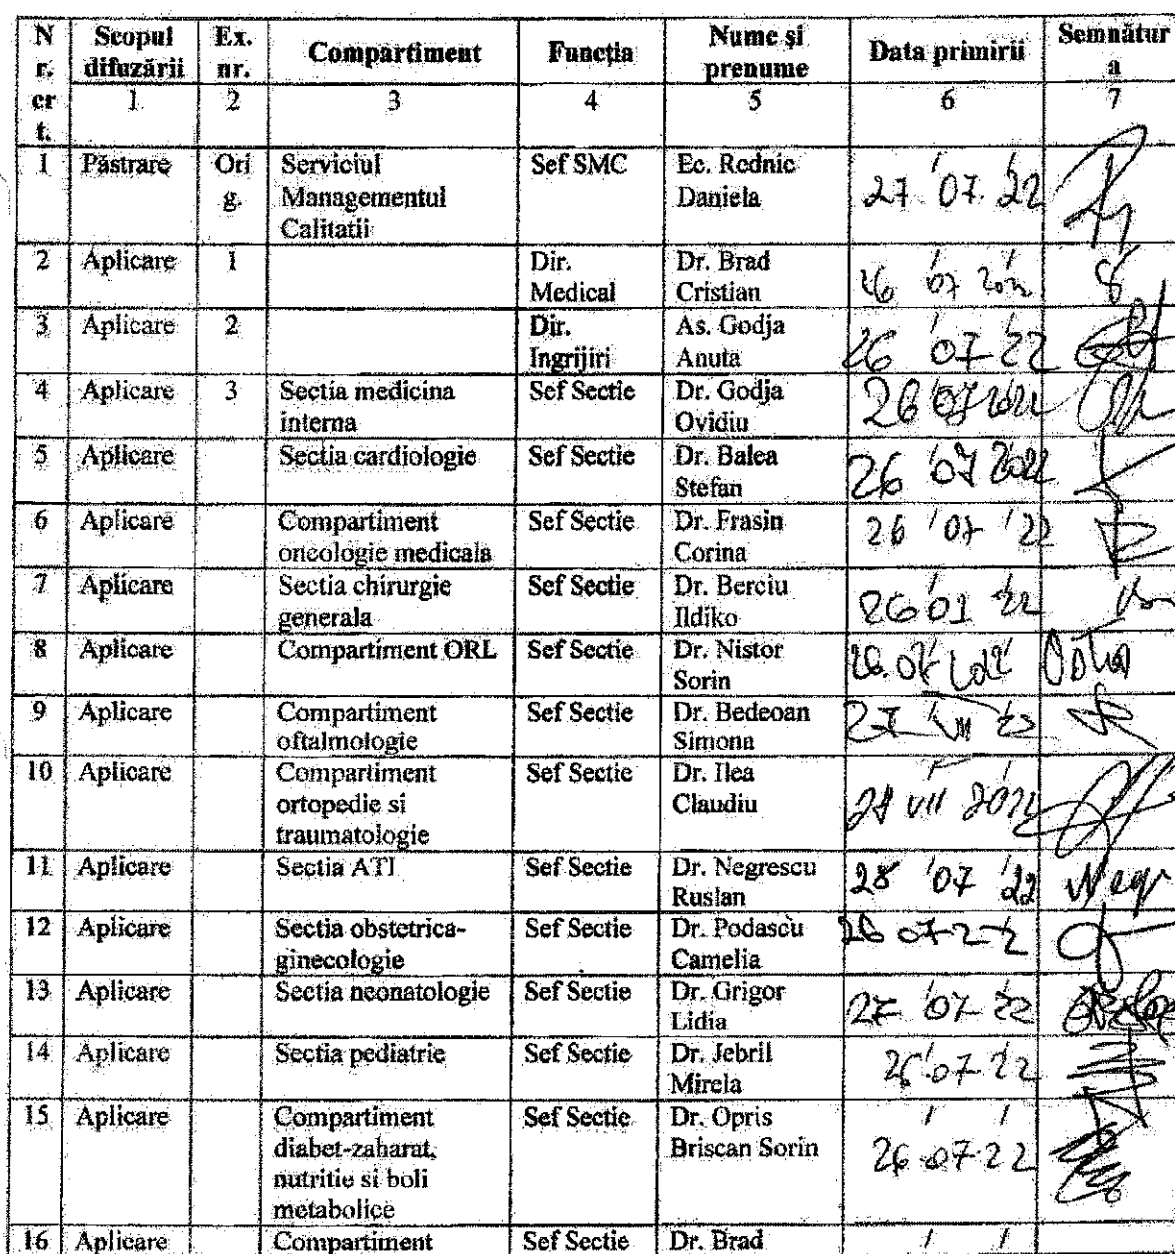 N r. crt. Scopul difuzării Ex. nr. Compartiment Funcția Nume și prenume Data primirii Semnătura
1 2 3 4 5 6 7
1 Păstrare Orig. Serviciul Managementul Calitatii Sef SMC Ec. Rednic Daniela 27 07 22
2 Aplicare 1 Dir. Medical Dr. Brad Cristian 26 07 2022
3 Aplicare 2 Dir. Ingrijiri As. Godja Anuta 26 07 22
4 Aplicare 3 Sectia medicina interna Sef Sectie Dr. Godja Ovidiu 26 07 2022
5 Aplicare Sectia cardiologie Sef Sectie Dr. Balea Stefan 26 07 2022
6 Aplicare Compartiment oncologie medicala Sef Sectie Dr. Frasin Corina 26 07 22
7 Aplicare Sectia chirurgie generala Sef Sectie Dr. Berciu Ildiko 26 07 22
8 Aplicare Compartiment ORL Sef Sectie Dr. Nistor Sorin 26.07 2022
9 Aplicare Compartiment oftalmologie Sef Sectie Dr. Bedeoan Simona 27 VII 22
10 Aplicare Compartiment ortopedie si traumatologie Sef Sectie Dr. Ilea Claudiu VII 2022
11 Aplicare Sectia ATI Sef Sectie Dr. Negrescu Ruslan 28 07 22
12 Aplicare Sectia obstetrica-ginecologie Sef Sectie Dr. Podascu Camelia 26 07 22
13 Aplicare Sectia neonatologie Sef Sectie Dr. Grigor Lidia 27 07 22
14 Aplicare Sectia pediatrie Sef Sectie Dr. Jebril Mirela 26 07 22
15 Aplicare Compartiment diabet-zaharat, nutritie si boli metabolice Sef Sectie Dr. Opris Briscan Sorin 26 07 22
16 Aplicare Compartiment Sef Sectie Dr. Brad